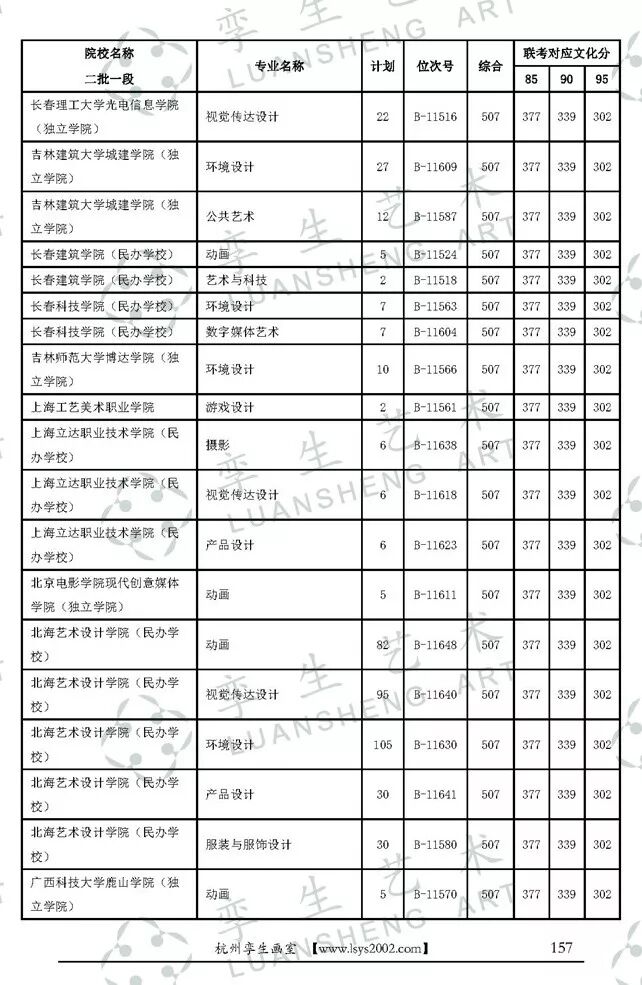 院校名称 专业名称 计划 位次号 综合 联考对应文化分
二批一段 85 90 95
长春理工大学光电信息学院
（独立学院） 视觉传达设计 22 B-11516 507 377 339 302
吉林建筑大学城建学院（独
立学院） 环境设计 27 B-11609 507 377 339 302
吉林建筑大学城建学院（独
立学院） 公共艺术 12 B-11587 507 377 339 302
长春建筑学院（民办学校） 动画 5 B-11524 507 377 339 302
长春建筑学院（民办学校） 艺术与科技 2 B-11518 507 377 339 302
长春科技学院（民办学校） 环境设计 7 B-11563 507 377 339 302
长春科技学院（民办学校） 数字媒体艺术 7 B-11604 507 377 339 302
吉林师范大学博达学院（独
立学院） 环境设计 10 B-11566 507 377 339 302
上海工艺美术职业学院 游戏设计 2 B-11561 507 377 339 302
上海立达职业技术学院（民
办学校） 摄影 6 B-11638 507 377 339 302
上海立达职业技术学院（民
办学校） 视觉传达设计 6 B-11618 507 377 339 302
上海立达职业技术学院（民
办学校） 产品设计 6 B-11623 507 377 339 302
北京电影学院现代创意媒体
学院（独立学院） 动画 5 B-11611 507 377 339 302
北海艺术设计学院（民办学
校） 动画 82 B-11648 507 377 339 302
北海艺术设计学院（民办学
校） 视觉传达设计 95 B-11640 507 377 339 302
北海艺术设计学院（民办学
校） 环境设计 105 B-11630 507 377 339 302
北海艺术设计学院（民办学
校） 产品设计 30 B-11641 507 377 339 302
北海艺术设计学院（民办学
校） 服装与服饰设计 30 B-11580 507 377 339 302
广西科技大学鹿山学院（独
立学院） 动画 5 B-11570 507 377 339 302
杭州孪生画室 【www.lsys2002.com】 157
孪生艺术
LUANSHENG ART
孪生艺术
LUANSHENG ART
孪生艺术
LUANSHENG ART
孪生艺术
LUANSHENG ART
孪生艺术
LUANSHENG ART